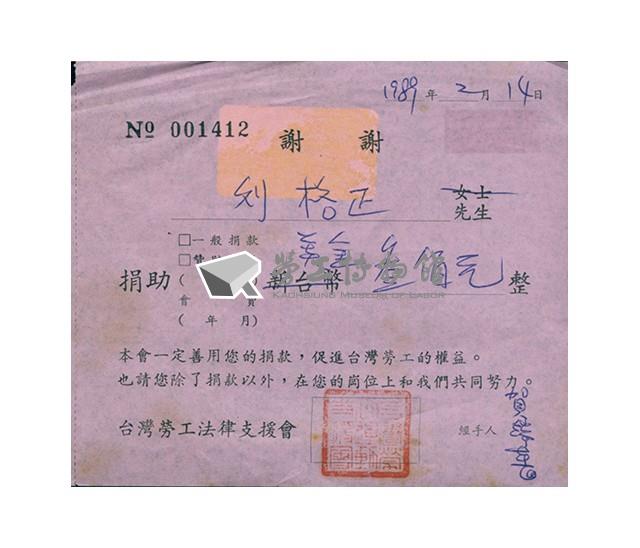 1989年2月14日
No 001412
謝 謝
利格正 女士 先生
□一般捐款
捐助 新台幣 美金叁佰元 整
會 費
( 年 月)
勞工博物館
KAOHSIUNG MUSEUM OF LABOR
本會一定善用您的捐款，促進台灣勞工的權益。
也請您除了捐款以外，在您的崗位上和我們共同努力。
台灣勞工法律支援會 經手人